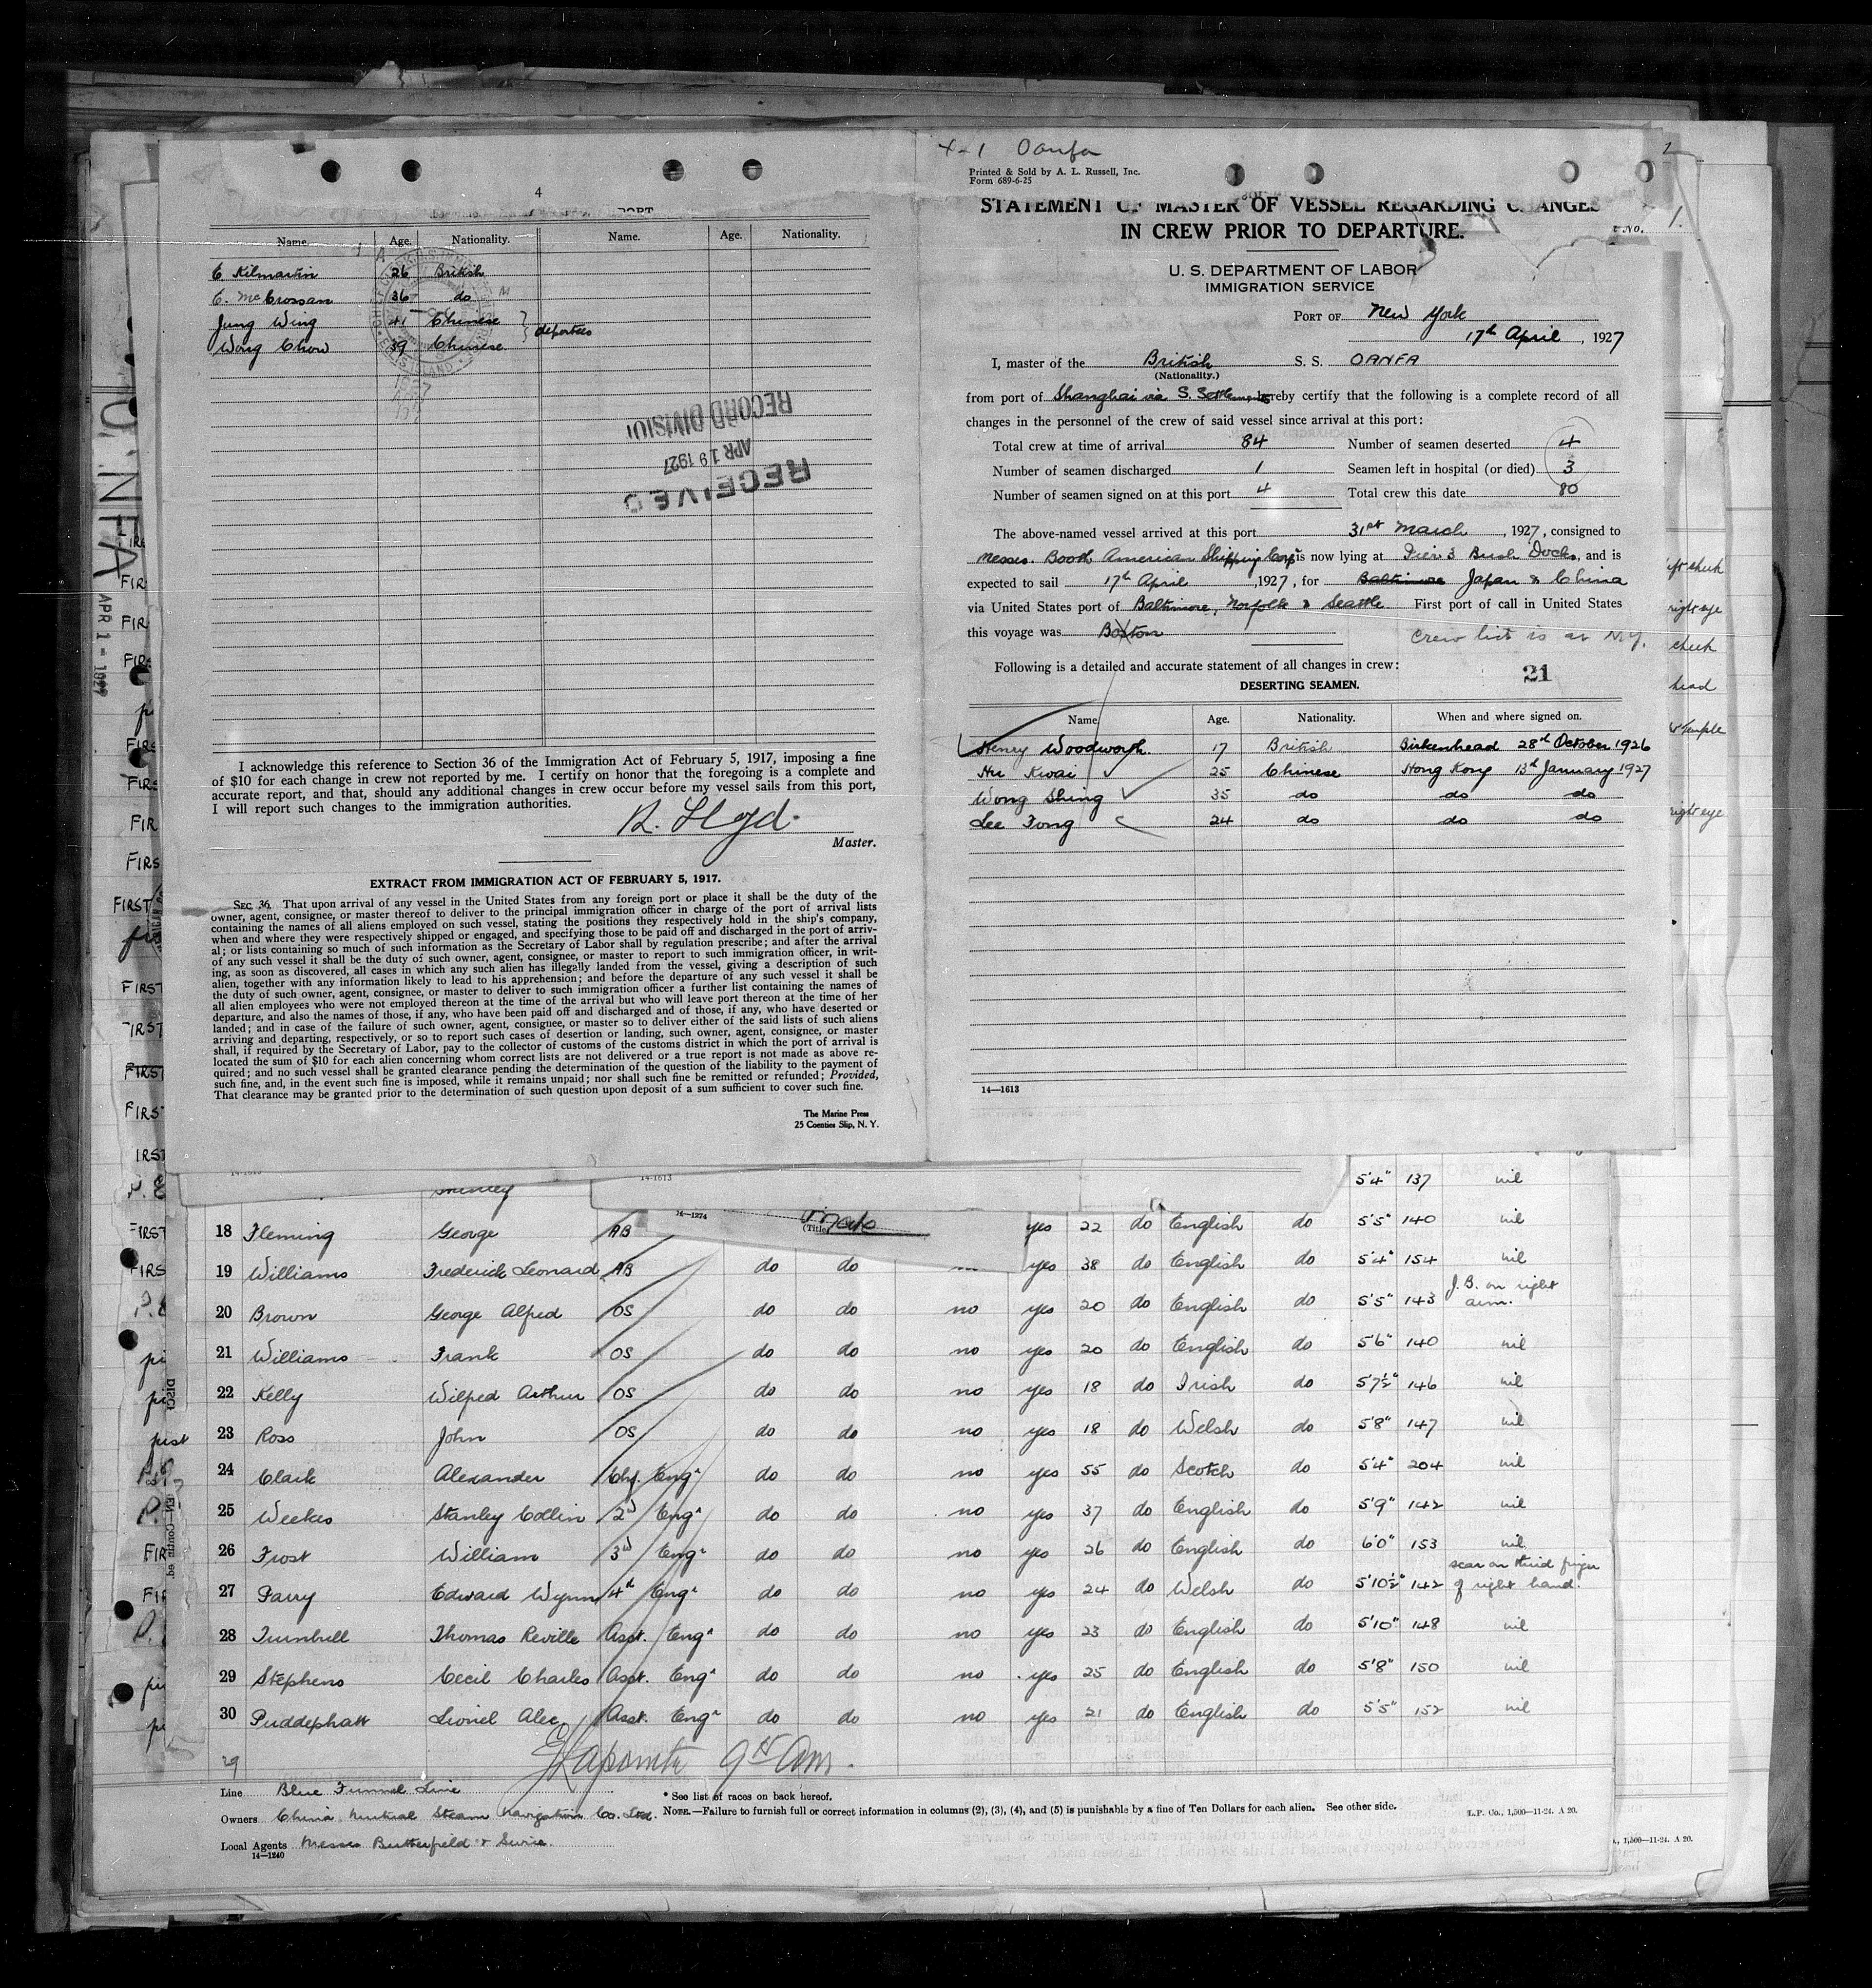 4
Name. Age. Nationality. Name. Age. Nationality.
E Kilmartin 26 British
C. McCrossan 36 do
Jung Wing 41 Chinese
deportees
Wong Chow 39 Chinese
RECORD DIVISION
APR 19 1927
RECEIVED
I acknowledge this reference to Section 36 of the Immigration Act of February 5, 1917, imposing a fine
of $10 for each change in crew not reported by me. I certify on honor that the foregoing is a complete and
accurate report, and that, should any additional changes in crew occur before my vessel sails from this port,
I will report such changes to the immigration authorities.
R. Lloyd.
Master.
EXTRACT FROM IMMIGRATION ACT OF FEBRUARY 5, 1917.
SEC. 36. That upon arrival of any vessel in the United States from any foreign port or place it shall be the duty of the
owner, agent, consignee, or master thereof to deliver to the principal immigration officer in charge of the port of arrival lists
containing the names of all aliens employed on such vessel, stating the positions they respectively hold in the ship's company,
when and where they were respectively shipped or engaged, and specifying those to be paid off and discharged in the port of arriv-
al; or lists containing so much of such information as the Secretary of Labor shall by regulation prescribe; and after the arrival
of any such vessel it shall be the duty of such owner, agent, consignee, or master to report to such immigration officer, in writ-
ing, as soon as discovered, all cases in which any such alien has illegally landed from the vessel, giving a description of such
alien, together with any information likely to lead to his apprehension; and before the departure of any such vessel it shall be
the duty of such owner, agent, consignee, or master to deliver to such immigration officer a further list containing the names of
all alien employees who were not employed thereon at the time of the arrival but who will leave port thereon at the time of her
departure, and also the names of those, if any, who have been paid off and discharged and of those, if any, who have deserted or
landed; and in case of the failure of such owner, agent, consignee, or master so to deliver either of the said lists of such aliens
arriving and departing, respectively, or so to report such cases of desertion or landing, such owner, agent, consignee, or master
shall, if required by the Secretary of Labor, pay to the collector of customs of the customs district in which the port of arrival is
located the sum of $10 for each alien concerning whom correct lists are not delivered or a true report is not made as above re-
quired; and no such vessel shall be granted clearance pending the determination of the question of the liability to the payment of
such fine, and, in the event such fine is imposed, while it remains unpaid; nor shall such fine be remitted or refunded; Provided,
That clearance may be granted prior to the determination of such question upon deposit of a sum sufficient to cover such fine.
The Marine Press
25 Coenties Slip, N. Y.
4-1 Oanfa
Printed & Sold by A. L. Russell, Inc.
Form 689-6-25
STATEMENT OF MASTER OF VESSEL REGARDING CHANGES
IN CREW PRIOR TO DEPARTURE.
No. 1.
U. S. DEPARTMENT OF LABOR
IMMIGRATION SERVICE
PORT OF New York
17th April, 1927
I, master of the British S. S. OANFA
(Nationality.)
from port of Shanghai via S. Settlements hereby certify that the following is a complete record of all
changes in the personnel of the crew of said vessel since arrival at this port:
Total crew at time of arrival 84 Number of seamen deserted 4
Number of seamen discharged 1 Seamen left in hospital (or died) 3
Number of seamen signed on at this port 4 Total crew this date 80
The above-named vessel arrived at this port 31st March, 1927, consigned to
Messrs. Booth American Shipping Corpn is now lying at Pier 3 Bush Docks, and is
expected to sail 17th April, 1927, for Baltimore Japan & China
via United States port of Baltimore, Norfolk & Seattle First port of call in United States
this voyage was Boston
Crew list is at N.Y.
Following is a detailed and accurate statement of all changes in crew:
21
DESERTING SEAMEN.
Name. Age. Nationality. When and where signed on.
Henry Woodworth 17 British Birkenhead 28th October 1926
Hu Kwai 25 Chinese Hong Kong 13th January 1927
Wong Shing 35 do do do
Lee Fong 24 do do do
14—1613
14-1613
14-1613
Stanley 5'4" 137 nil
14—1274
(Title)
18 Fleming George AB yes 22 do English do 5'5" 140 nil
19 Williams Frederick Leonard AB do do yes 38 do English do 5'4" 154 nil
20 Brown George Alfred OS do do no yes 20 do English do 5'5" 143 J.B. on right arm.
21 Williams Frank OS do do no yes 20 do English do 5'6" 140 nil
22 Kelly Wilfred Arthur OS do do no yes 18 do Irish do 5'7½" 146 nil
23 Ross John OS do do no yes 18 do Welsh do 5'8" 147 nil
24 Clark Alexander Chf. Engr do do no yes 55 do Scotch do 5'4" 204 nil
25 Weekes Stanley Collin 2nd Engr do do no yes 37 do English do 5'9" 142 nil
26 Frost William 3rd Engr do do no yes 26 do English do 6'0" 153 nil
27 Parry Edward Wynn 4th Engr do do no yes 24 do Welsh do 5'10½" 142 scar on third finger of right hand.
28 Turnbull Thomas Reville Asst. Engr do do no yes 23 do English do 5'10" 148 nil
29 Stephens Cecil Charles Asst. Engr do do no yes 25 do English do 5'8" 150 nil
30 Puddephatt Lionel Alec Asst. Engr do do no yes 21 do English do 5'5" 152 nil
29
Line Blue Funnel Line
* See list of races on back hereof.
Owners China Mutual Steam Navigation Co. Ltd.
NOTE.—Failure to furnish full or correct information in columns (2), (3), (4), and (5) is punishable by a fine of Ten Dollars for each alien. See other side.
L.P. Co., 1,500—11-24. A 20.
Local Agents Messrs Butterfield & Swire.
14—1240
1,500—11-24. A 20.
APR 1 - 1927